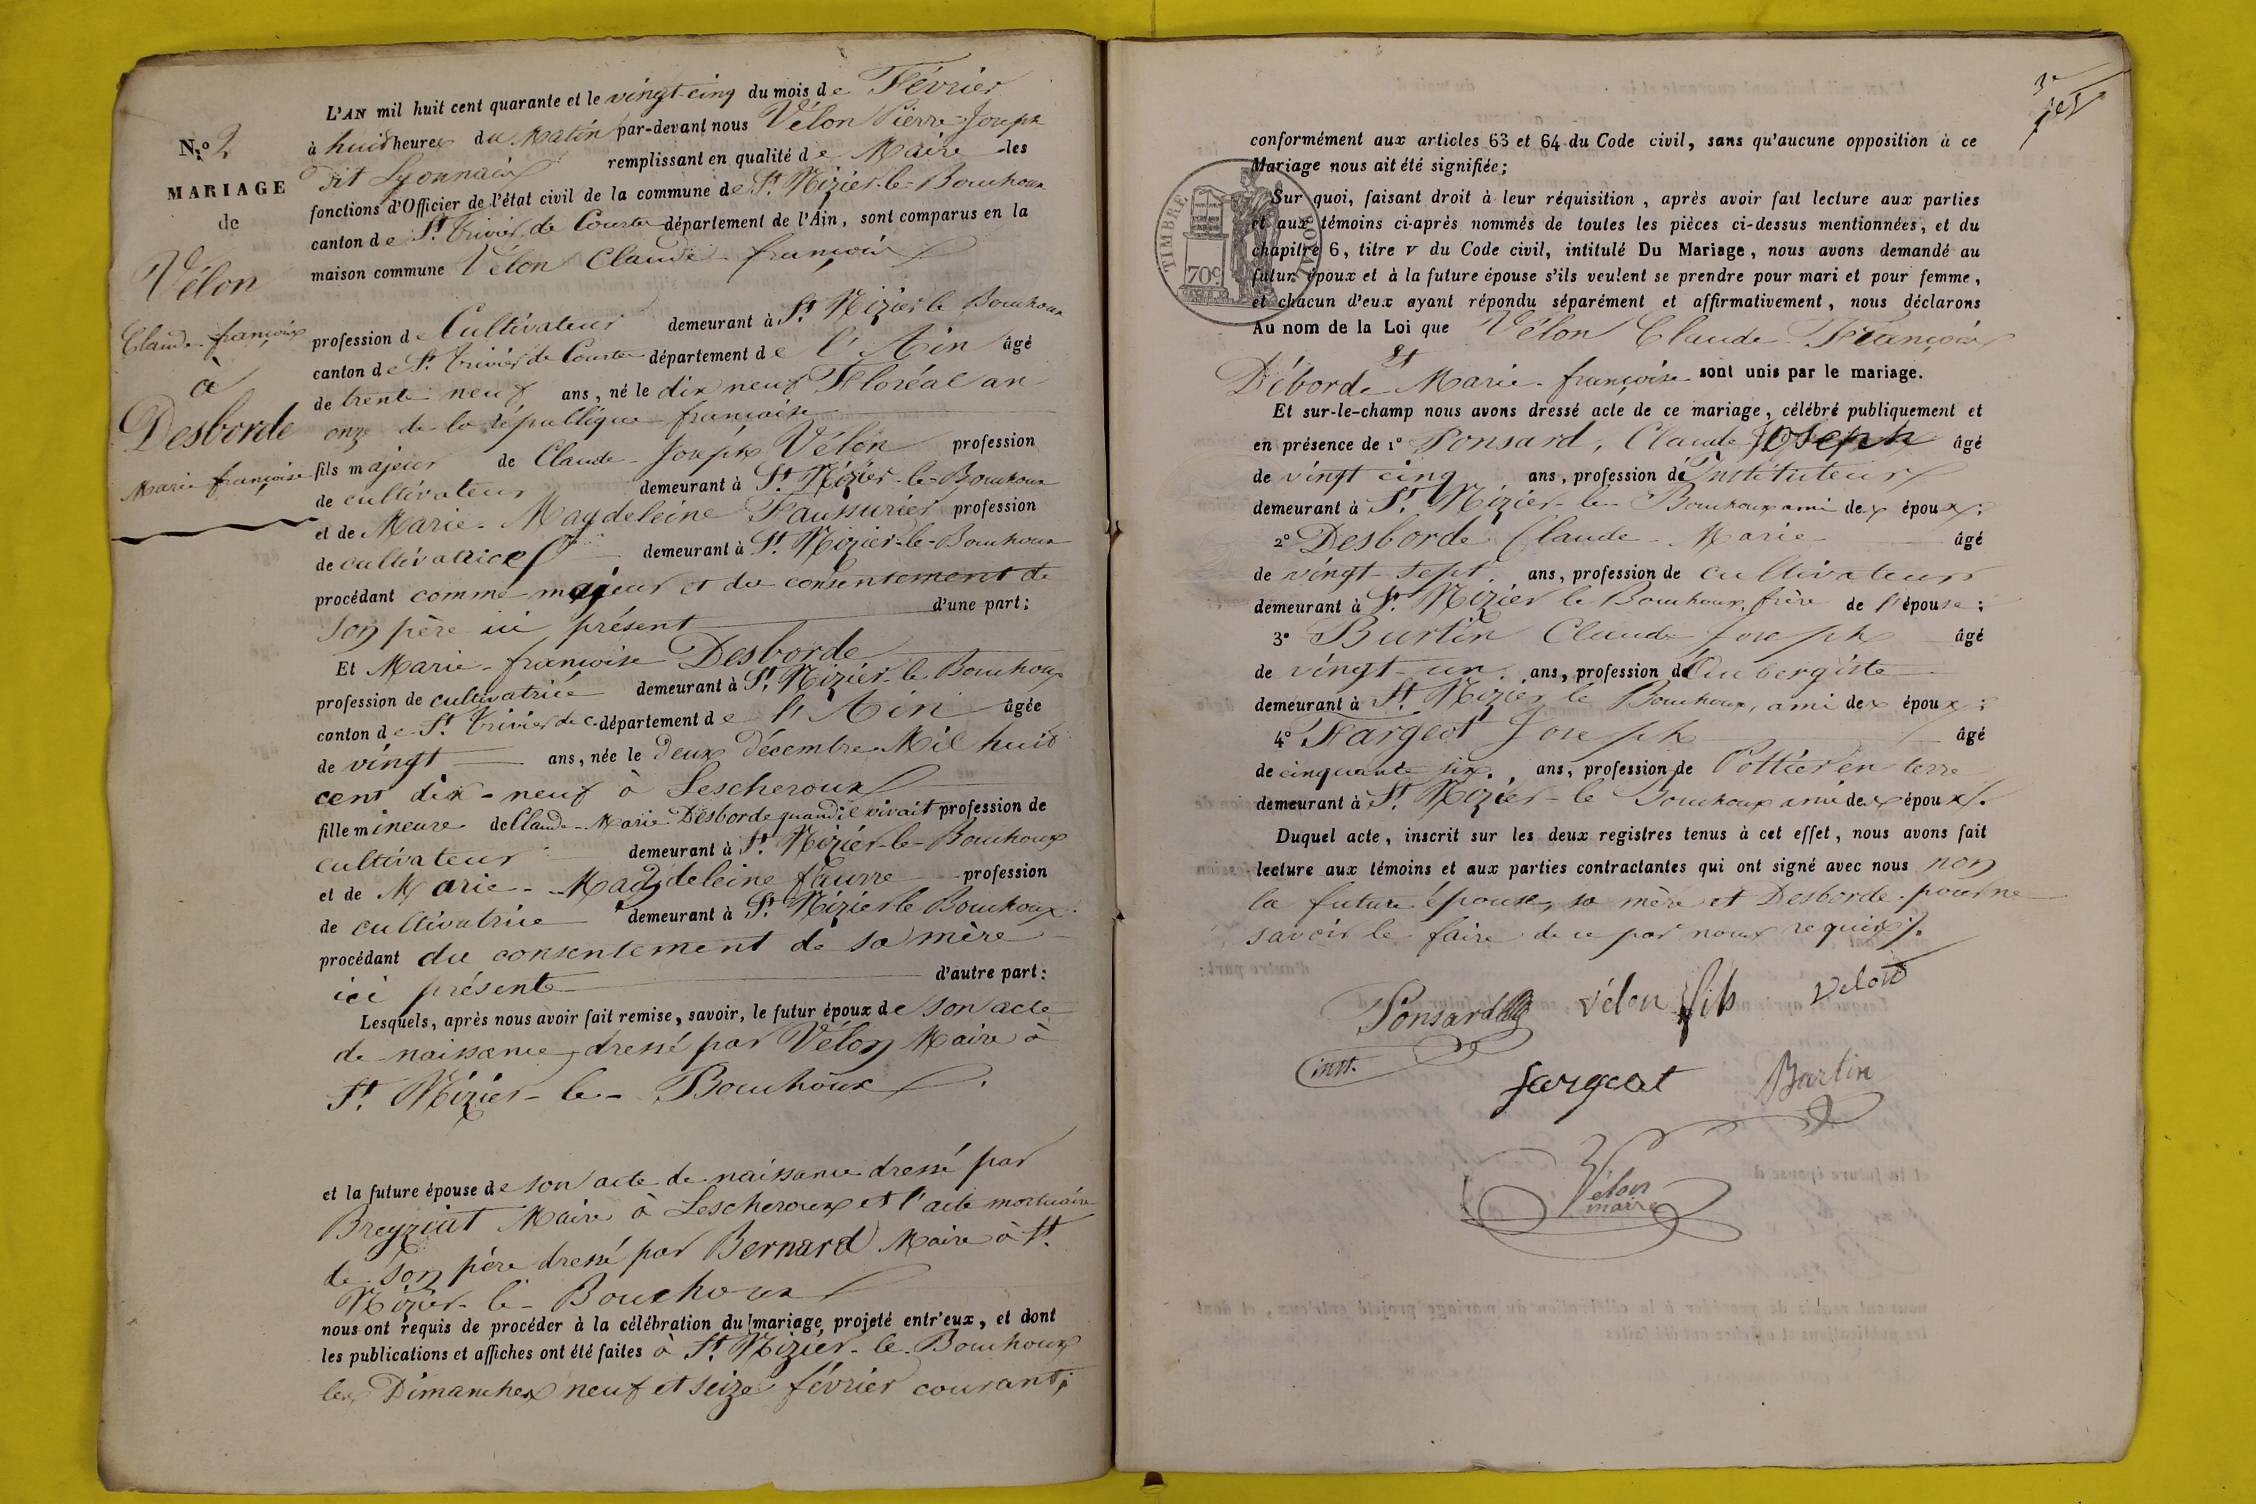 N.o 2
MARIAGE
de
Vélon
Claude-françois
à
Desborde
Marie-françoise
L'AN mil huit cent quarante et le vingt-cinq du mois de Février
à huit heures du Matin par-devant nous Vélon Pierre-Joseph
dit Lyonnais remplissant en qualité de Maire les
fonctions d'Officier de l'état civil de la commune de St. Nizier-le-Bouchoux
canton de St. Trivier de Courtes département de l'Ain, sont comparus en la
maison commune Vélon Claude-françois
profession de Cultivateur demeurant à St. Nizier le Bouchoux
canton de St. Trivier de Courtes département de l'Ain âgé
de trente neuf ans, né le dix neuf Floréal an
onze de la république française
fils majeur de Claude-Joseph Vélon profession
de cultivateur demeurant à St. Nizier-le-Bouchoux
et de Marie-Magdeleine Faussurier profession
de cultivatrice demeurant à St. Nizier-le-Bouchoux
procédant comme majeur et du consentement de
son père ici présent d'une part;
Et Marie-françoise Desborde
profession de cultivatrice demeurant à St. Nizier-le Bouchoux
canton de St. Trivier de C. département de l'Ain âgée
de vingt ans, née le deux Décembre Mil huit
cent dix-neuf à Lescheroux
fille mineure de Claude-Marie Desborde quand il vivait profession de
cultivateur demeurant à St. Nizier-le-Bouchoux
et de Marie-Magdeleine faurre profession
de cultivatrice demeurant à St. Nizier le Bouchoux
procédant du consentement de sa mère
ici présente d'autre part:
Lesquels, après nous avoir fait remise, savoir, le futur époux de son acte
de naissance, dressé par Vélon Maire à
St. Nizier-le-Bouchoux
et la future épouse de son acte de naissance dressé par
Breyziat Maire à Lescheroux et l'acte mortuaire
de son père dressé par Bernard Maire à St.
Nizier-le-Bouchoux
nous ont requis de procéder à la célébration du mariage projeté entr'eux, et dont
les publications et affiches ont été faites à St. Nizier-le-Bouchoux
les Dimanches neuf et seize février courant;
3
conformément aux articles 63 et 64 du Code civil, sans qu'aucune opposition à ce
Mariage nous ait été signifiée;
Sur quoi, faisant droit à leur réquisition, après avoir fait lecture aux parties
et aux témoins ci-après nommés de toutes les pièces ci-dessus mentionnées, et du
chapitre 6, titre v du Code civil, intitulé Du Mariage, nous avons demandé au
futur époux et à la future épouse s'ils veulent se prendre pour mari et pour femme,
et chacun d'eux ayant répondu séparément et affirmativement, nous déclarons
Au nom de la Loi que Vélon Claude-François
et
Déborde Marie-françoise sont unis par le mariage.
Et sur-le-champ nous avons dressé acte de ce mariage, célébré publiquement et
en présence de 1o Ponsard, Claude Joseph âgé
de vingt cinq ans, profession d'Instituteur
demeurant à St. Nizier-le-Bouchoux ami des époux;
2o Desborde Claude-Marie âgé
de vingt-sept ans, profession de cultivateur
demeurant à St. Nizier le Bouchoux, frère de l'épouse;
3o Burtin Claude Joseph âgé
de vingt-un ans, profession d'Aubergiste
demeurant à St. Nizier le Bouchoux, ami des époux;
4o Fargeot Joseph âgé
de cinquante six ans, profession de Pottier en terre
demeurant à St. Nizier-le Bouchoux ami des époux.
Duquel acte, inscrit sur les deux registres tenus à cet effet, nous avons fait
lecture aux témoins et aux parties contractantes qui ont signé avec nous non
la future épouse, sa mère et Desborde pour ne
savoir le faire de ce par nous requis.
TIMBRE ROYAL
70c.
Ponsard Vélon fils Velon
inst.
fargeat Burtin
Vélon
maire